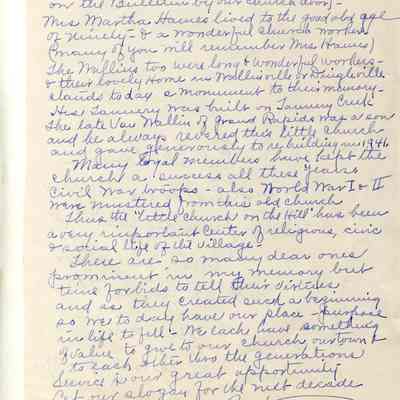 on the Bulletin by our church door) -
Mrs Martha Haines lived to the good old age
of Ninety - & a wonderful church worker
(many of you will remember Mrs Haines)
The Wallins too were long & wonderful workers -
& their lovely Home in Wallinville or
stands today a monument to their memory -
His Tannery was built on Tannery Creek
The late Van Wallin of Grand Rapids was a son
and he always revered this little church
and gave generously to rebuilding in 1946
Many loyal members have kept the
church a success all these years
Civil War troops - also World War I & II
were mustered from this old church
Thus the "Little Church on the Hill" has been
a very important Center of religious, civic
& social life of the village -
There are so many dear ones
prominent in my memory but
time forbids to tell their virtues
and as they created such a beginning
so we today have our place - purpose
in life to fill - We each have something
of value to give to our church, our town &
to each other thro the generations
Service is our great opportunity
Let our slogan for the next decade